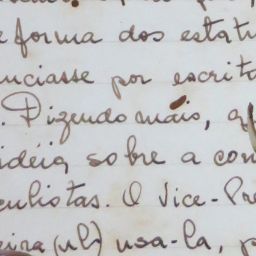 e forma dos estatu
unciasse por escrito
. Dizendo mais, q
idéia sobre a con
culistas. O Vice-Pre
eira (ul) usa-la, p